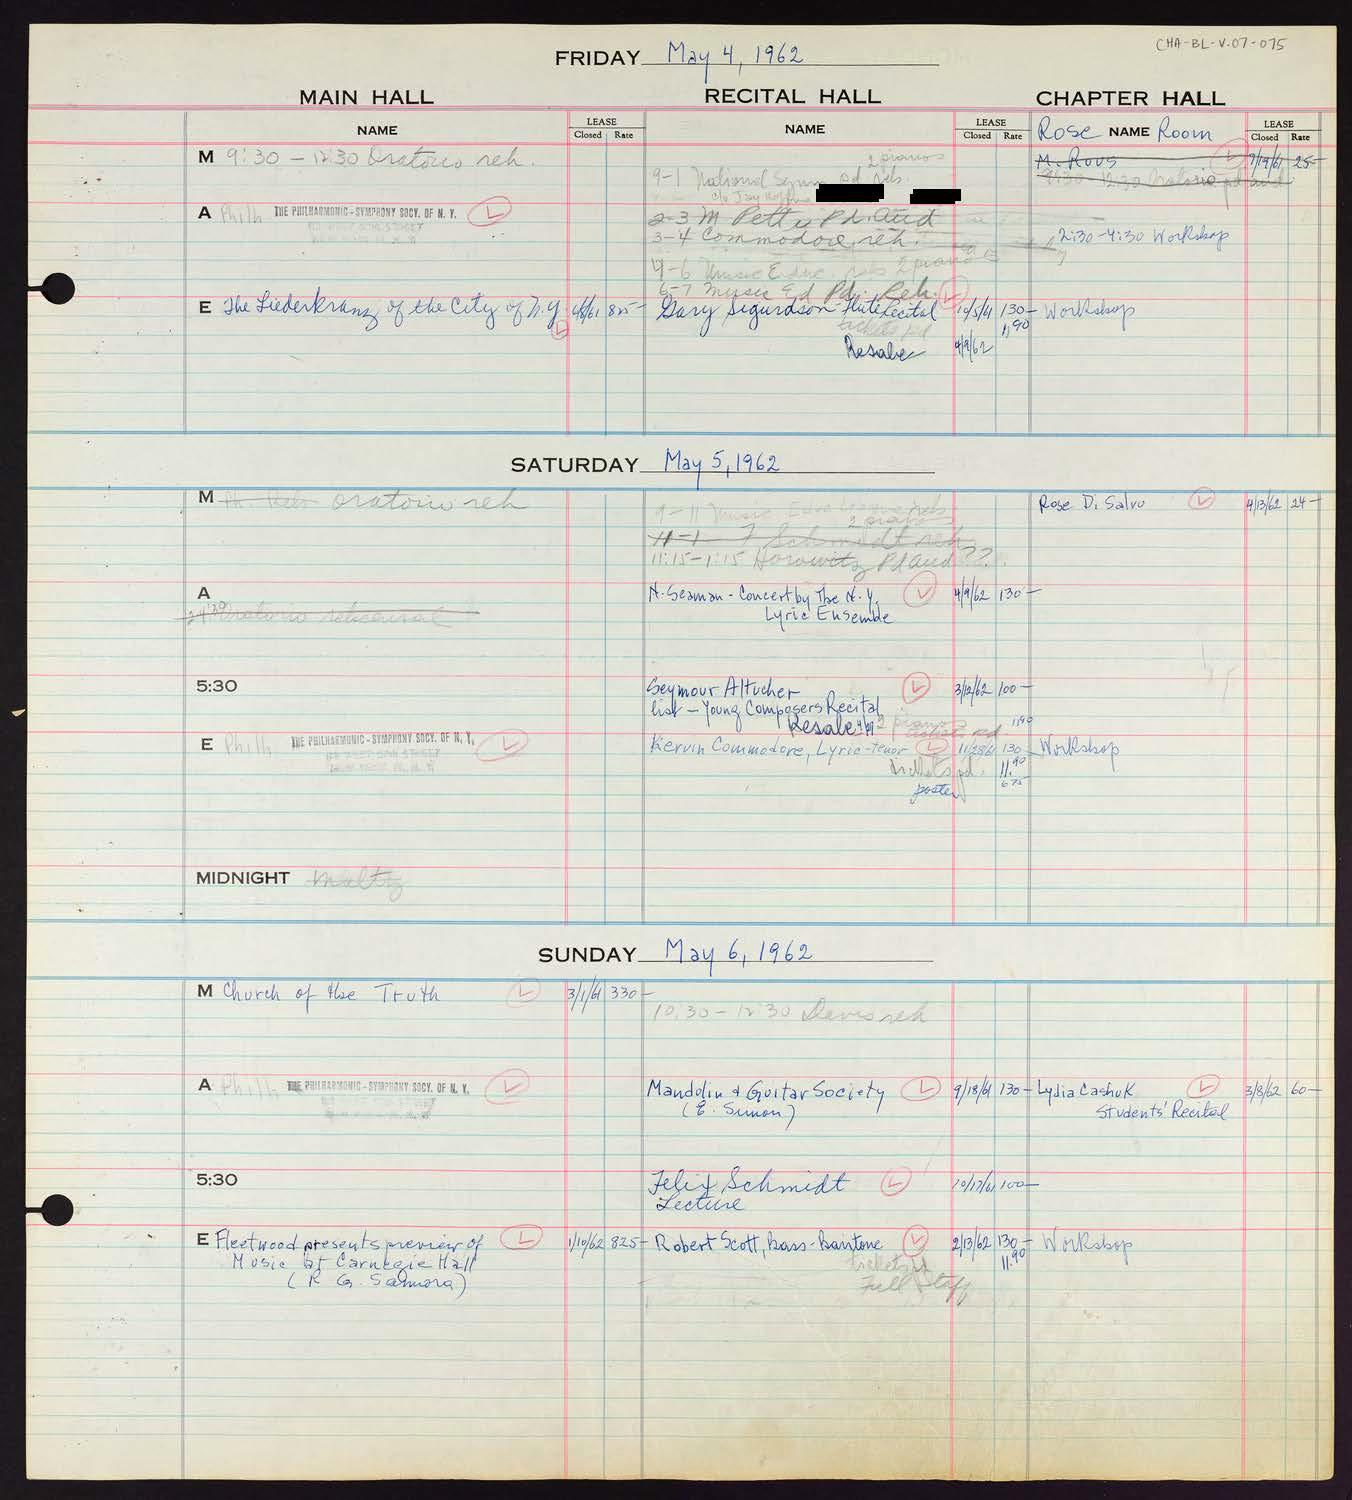 CHA-BL-V.07-075
FRIDAY May 4, 1962
MAIN HALL RECITAL HALL CHAPTER HALL
NAME LEASE Closed Rate NAME LEASE Closed Rate Rose NAME Room LEASE Closed Rate
M 9:30 - 12:30 Oratorio reh.
2 pianos
9-1 National Symp
M. Rovs 7/19/61 25-
9:30 - 12:30 Oratorio pd aud
A Philh THE PHILHARMONIC-SYMPHONY SOCY. OF N. Y.
2-3 M Petty Pd. aud
3-4 Commodore reh.
2:30-4:30 Workshop
4-6 Music Educ. reh 2 pianos
6-7 Music Ed Pd. Reh.
E The Liederkranz of the City of N.Y. 825- Gary Sigurdson-Flute Recital 10/5/61 130- Workshop
tickets pd 11.90
Resale 4/9/62
SATURDAY May 5, 1962
M Ph. Reh Oratorio reh
9-11 Music Educ League reh
2 pianos
11-1 F Schmidt reh.
11:15-1:15 Horowitz Pd aud ??
Rose Di Salvo 4/13/62 24-
A
Oratorio rehearsal
N. Seaman - Concert by the N.Y. 4/9/62 130-
Lyric Ensemble
5:30
Seymour Altucher 3/12/62 100-
list - Young Composers Recital
Resale 2 pianos 11.90
E Philh THE PHILHARMONIC-SYMPHONY SOCY. OF N. Y.
Kervin Commodore, Lyric-tenor 11/28/61 130- Workshop
tickets pd. 11.90
poster 6.75
MIDNIGHT Maltz
SUNDAY May 6, 1962
M Church of the Truth 3/1/61 330-
10:30 - 12:30 Davis reh
A Philh THE PHILHARMONIC-SYMPHONY SOCY. OF N. Y.
Mandolin & Guitar Society 9/18/61 130- Lydia Cashuk 3/8/62 60-
(E. Simon) Students' Recital
5:30
Felix Schmidt 10/17/61 100-
Lecture
E Fleetwood presents preview of 1/10/62 825- Robert Scott, Bass-Baritone 2/13/62 130- Workshop
Music at Carnegie Hall tickets 11.90
(R. G. Samora) Full Staff